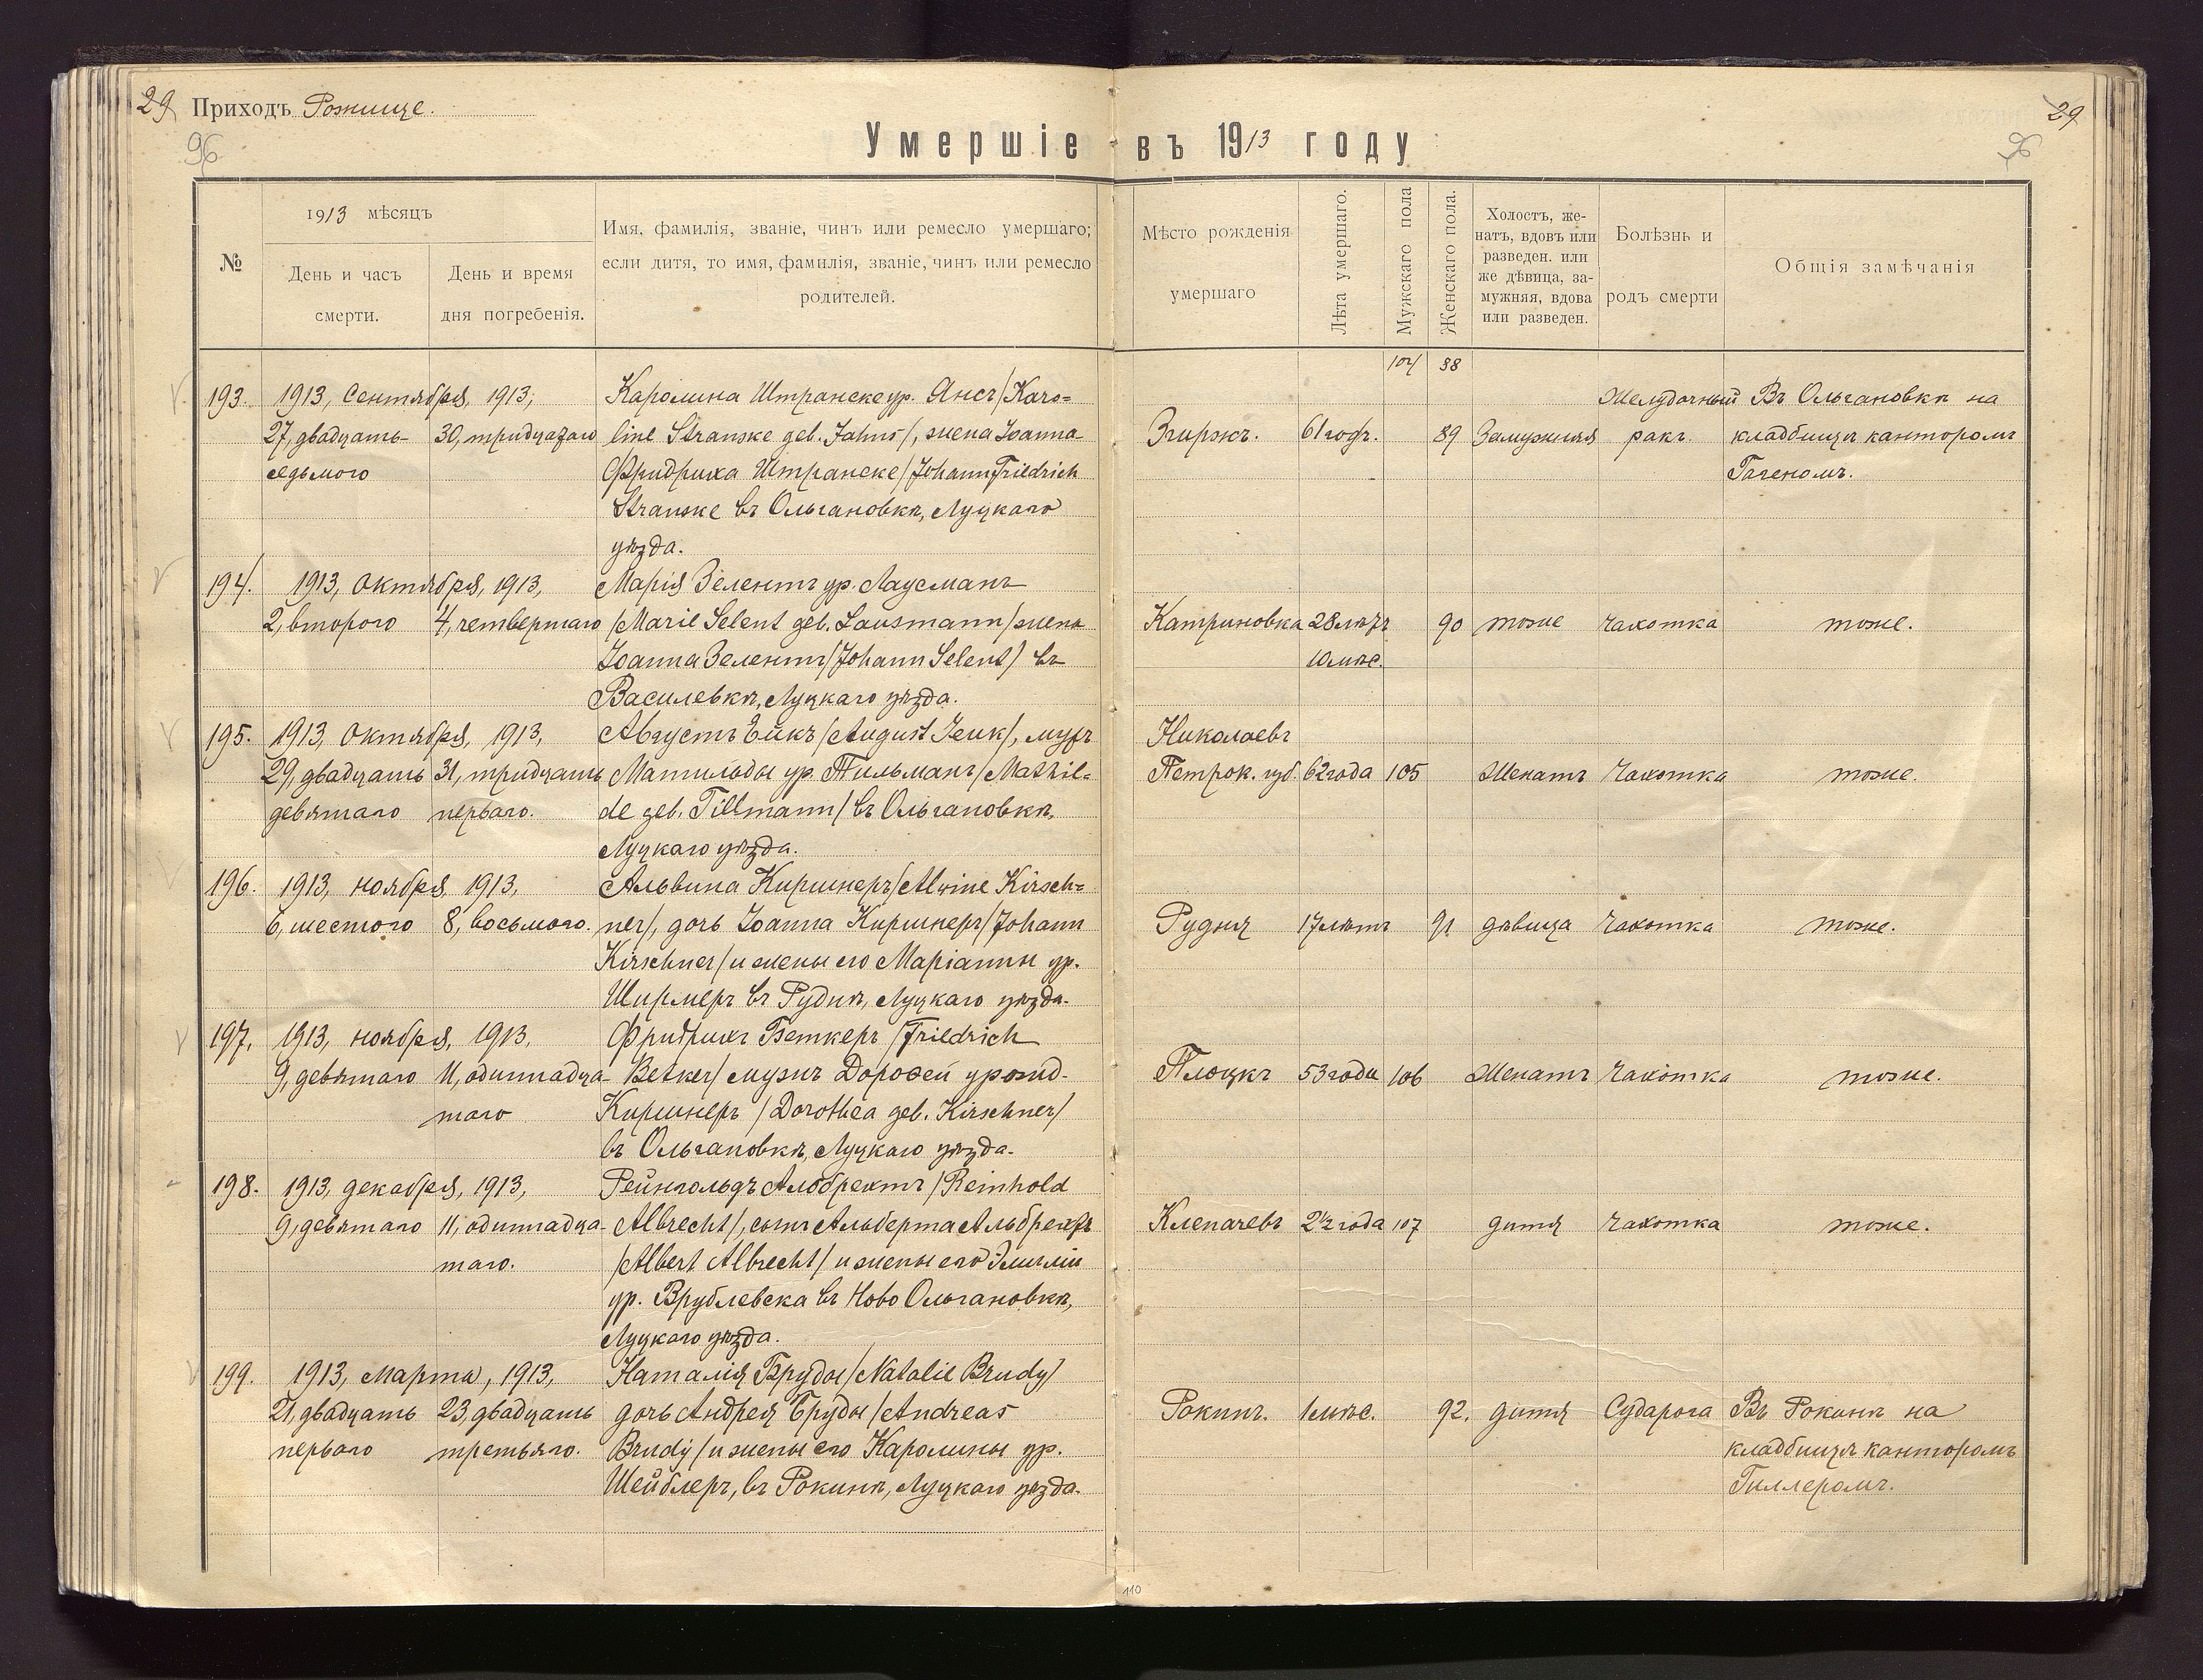 29 Приходъ Рожище. 29
96 96
Умершіе въ 1913 году
№
1913 мѣсяцъ
День и часъ
смерти.
День и время
дня погребенія.
Имя, фамилія, званіе, чинъ или ремесло умершаго;
если дитя, то имя, фамилія, званіе, чинъ или ремесло
родителей.
Мѣсто рожденія
умершаго
Лѣта умершаго.
Мужскаго пола
Женскаго пола.
Холостъ, же-
натъ, вдовъ или
разведен. или
же дѣвица, за-
мужняя, вдова
или разведен.
Болѣзнь и
родъ смерти
Общія замѣчанія
104 88
193. 1913, Сентября, 1913, Каролина Штранске ур. Янсъ /Karo= Желудочный Въ Ольгановкѣ на
27, двадцать- 30, тридцатаго line Stranske geb. Jahns/, жена Іоанна- Згиржъ. 61 годъ. 89 Замужняя ракъ. кладбищѣ канторомъ
седьмого Фридриха Штранске /Johann Friedrich Гагеномъ.
Stranske въ Ольгановкѣ, Луцкаго
уѣзда.
194. 1913, Октября, 1913, Марія Зелентъ ур. Лаусманъ
2, второго 4, четвертаго /Marie Selent geb. Lausmann/ жена Катриновка 28 лѣтъ 90 тоже Чахотка тоже.
Іоанна Зелентъ /Johann Selent/ въ 10 мѣс.
Василевкѣ, Луцкаго уѣзда.
195. 1913, Октября, 1913, Августъ Ейкъ /August Jeik/, мужъ Николаевъ
29, двадцать 31, тридцать Матильды ур. Тильманъ /Mathil= Петрок. губ. 62 года 105 Женатъ Чахотка тоже.
девятаго перваго. de geb. Tillmann/ въ Ольгановкѣ,
Луцкаго уѣзда.
196. 1913, ноября, 1913, Альвина Киршнеръ /Alwine Kirsch=
6, шестого 8, восьмого. ner/, дочь Іоанна Киршнеръ /Johann Рудня 17 лѣтъ 91 дѣвица Чахотка тоже.
Kirschner/ и жены его Маріанны ур.
Ширмеръ въ Руднѣ, Луцкаго уѣзда.
197. 1913, ноября, 1913, Фридрихъ Беткеръ /Friedrich
9, девятаго 11, одиннадца- Betker/ мужъ Доровеи урожд- Плоцкъ 53 года 106 Женатъ Чахотка тоже.
таго Киршнеръ /Dorothea geb. Kirschner/
въ Ольгановкѣ, Луцкаго уѣзда.
198. 1913, декабря, 1913, Рейнгольдъ Албрехтъ /Reinhold
9, девятаго 11, одиннадца- Albrecht/, сынъ Альберта Альбрехтъ Клепачевъ 2½ года 107 дитя Чахотка тоже.
таго. /Albert Albrecht/ и жены его Эмиліи
ур. Врублевска въ Ново Ольгановкѣ,
Луцкаго уѣзда.
199. 1913, Марта, 1913, Наталія Бруды /Natalie Brudy/
21, двадцать 23, двадцать дочь Андрея Бруды /Andreas Рокинъ. 1 мѣс. 92. дитя Сударога Въ Рокинѣ на
перваго третьяго. Brudy/ и жены его Каролины ур. кладбищѣ канторомъ
Шейблеръ, въ Рокинѣ, Луцкаго уѣзда. Гиллеромъ.
110